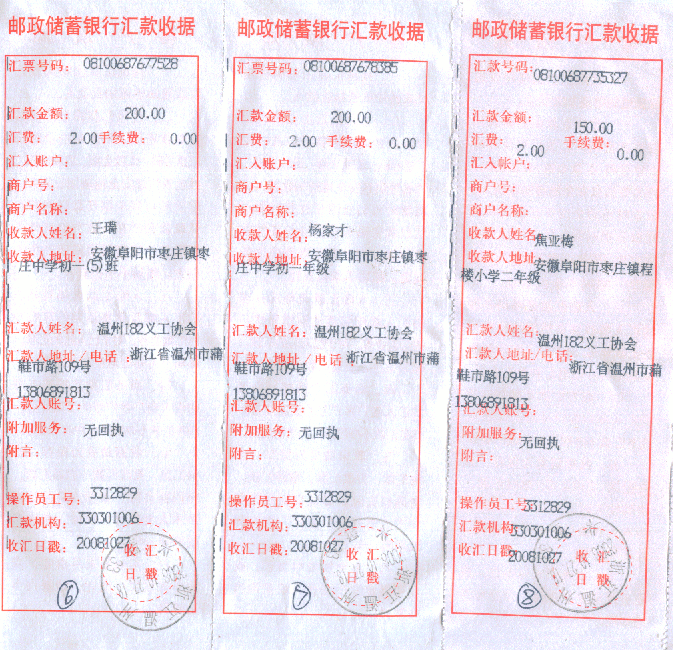 邮政储蓄银行汇款收据
汇票号码：08100687677528
汇款金额：200.00
汇费：2.00手续费：0.00
汇入账户：
商户号：
商户名称：
收款人姓名：王瑞
收款人地址：安徽阜阳市枣庄镇枣
庄中学初一(5)班
汇款人姓名：温州182义工协会
汇款人地址/电话：浙江省温州市蒲
鞋市路109号
13806891813
汇款人账号：
附加服务：无回执
附言：
操作员工号：3312829
汇款机构：330301006
收汇日戳：20081027
收汇
日戳
6
邮政储蓄银行汇款收据
汇票号码：08100687678385
汇款金额：200.00
汇费：2.00手续费：0.00
汇入账户：
商户号：
商户名称：
收款人姓名：杨家才
收款人地址：安徽阜阳市枣庄镇枣
庄中学初一年级
汇款人姓名：温州182义工协会
汇款人地址/电话：浙江省温州市蒲
鞋市路109号
13806891813
汇款人账号：
附加服务：无回执
附言：
操作员工号：3312829
汇款机构：330301006
收汇日戳：20081027
收汇
日戳
7
邮政储蓄银行汇款收据
汇款号码：08100687735327
汇款金额：150.00
汇费：2.00手续费：0.00
汇入帐户：
商户号：
商户名称：
收款人姓名：焦亚梅
收款人地址：安徽阜阳市枣庄镇程
楼小学二年级
汇款人姓名：温州182义工协会
汇款人地址/电话：浙江省温州市蒲
鞋市路109号
13806891813
汇款人账号：
附加服务：无回执
附言：
操作员工号3312829
汇款机构330301006
收汇日戳20081027
收汇
日戳
8